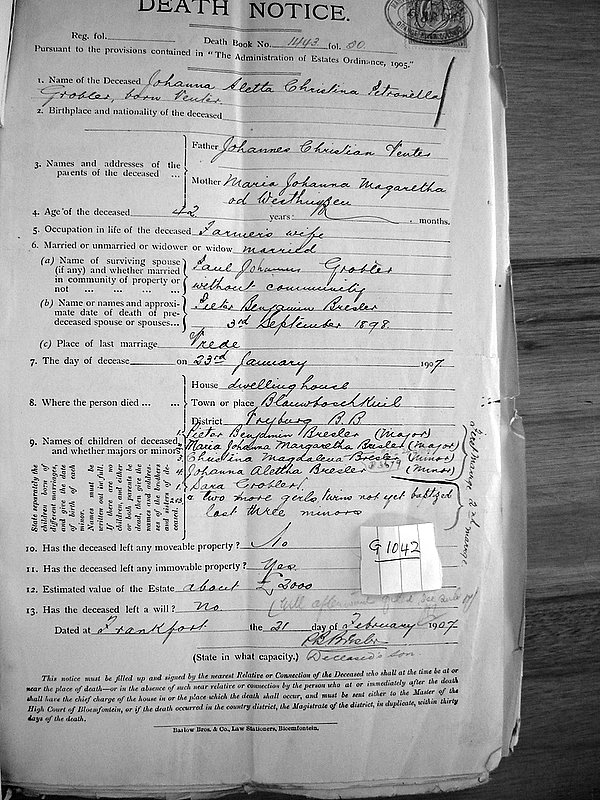 DEATH NOTICE.
Reg. fol. Death Book No. 1443 fol. 00
Pursuant to the provisions contained in "The Administration of Estates Ordinance, 1905."
1. Name of the Deceased Johanna Aletta Christina Petronella
Grobler, born Venter
2. Birthplace and nationality of the deceased
3. Names and addresses of the parents of the deceased ...
Father Johannes Christian Venter
Mother Maria Johanna Magaretha
vd Westhuyzen
4. Age of the deceased 42 years: months.
5. Occupation in life of the deceased Farmers wife
6. Married or unmarried or widower or widow married
(a) Name of surviving spouse (if any) and whether married in community of property or not ... ... ... ...
Paul Johannes Grobler
without community
(b) Name or names and approximate date of death of pre-deceased spouse or spouses...
Pieter Benjamin Bresler
3rd September 1898
(c) Place of last marriage Vrede
7. The day of decease on 23rd January 1907.
8. Where the person died ... ...
House dwelling house
Town or place Blauwboschkuil
District Vryburg B.B
9. Names of children of deceased, and whether majors or minors
State separately the children born of different marriages, and give the date of birth of each minor.
Names must be written out in full. If there are no children, and either or both parents be dead, then give the names and addresses of the brothers and sisters of deceased.
1. Pieter Benjamin Bresler (Major)
2. Maria Johanna Margaretha Bresler (Major)
3. Christina Magdalena Bresler (Minor)
4. Johanna Alettha Bresler (Minor)
83679
1. Sara Grobler
2 3 & two more girls, twins not yet baptized
last three minors
10. Has the deceased left any moveable property? No
11. Has the deceased left any immovable property? Yes
G1042
12. Estimated value of the Estate about £2000
13. Has the deceased left a will? No
(Will afterwards
Dated at Frankfort the 21 day of February 1907
PB Bresler
(State in what capacity.) Deceased's son.
This notice must be filled up and signed by the nearest Relative or Connection of the Deceased who shall at the time be at or
near the place of death—or in the absence of such near relative or connection by the person who at or immediately after the death
shall have the chief charge of the house in or the place which the death shall occur, and must be sent either to the Master of the
High Court of Bloemfontein, or if the death occurred in the country district, the Magistrate of the district, in duplicate, within thirty
days of the death.
Barlow Bros. & Co., Law Stationers, Bloemfontein.